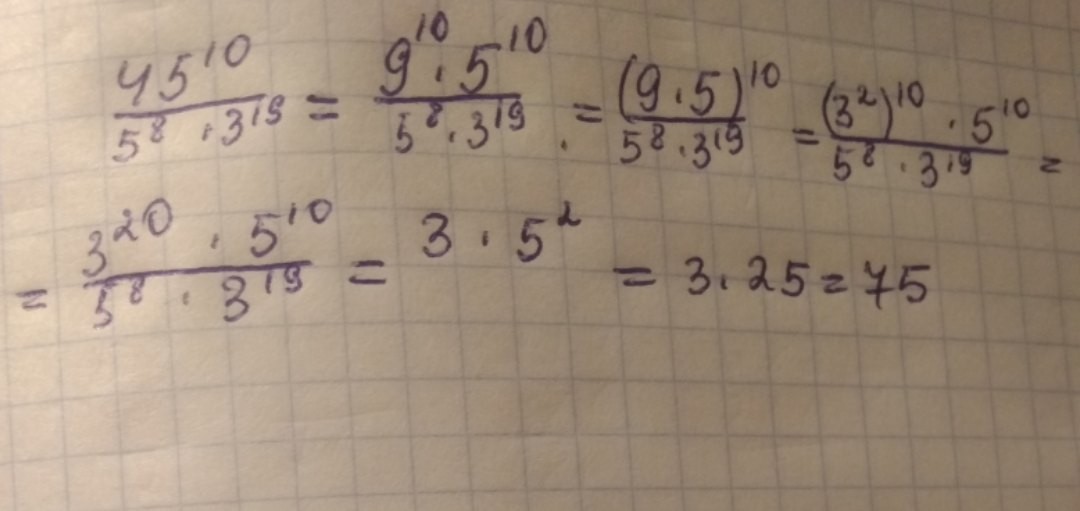 45^10 / 5^8 · 3^19 = 9^10 · 5^10 / 5^8 · 3^19 . = (9 · 5)^10 / 5^8 · 3^19 = (3^2)^10 · 5^10 / 5^8 · 3^19 =
= 3^20 · 5^10 / 5^8 · 3^19 = 3 · 5^2 = 3 · 25 = 75